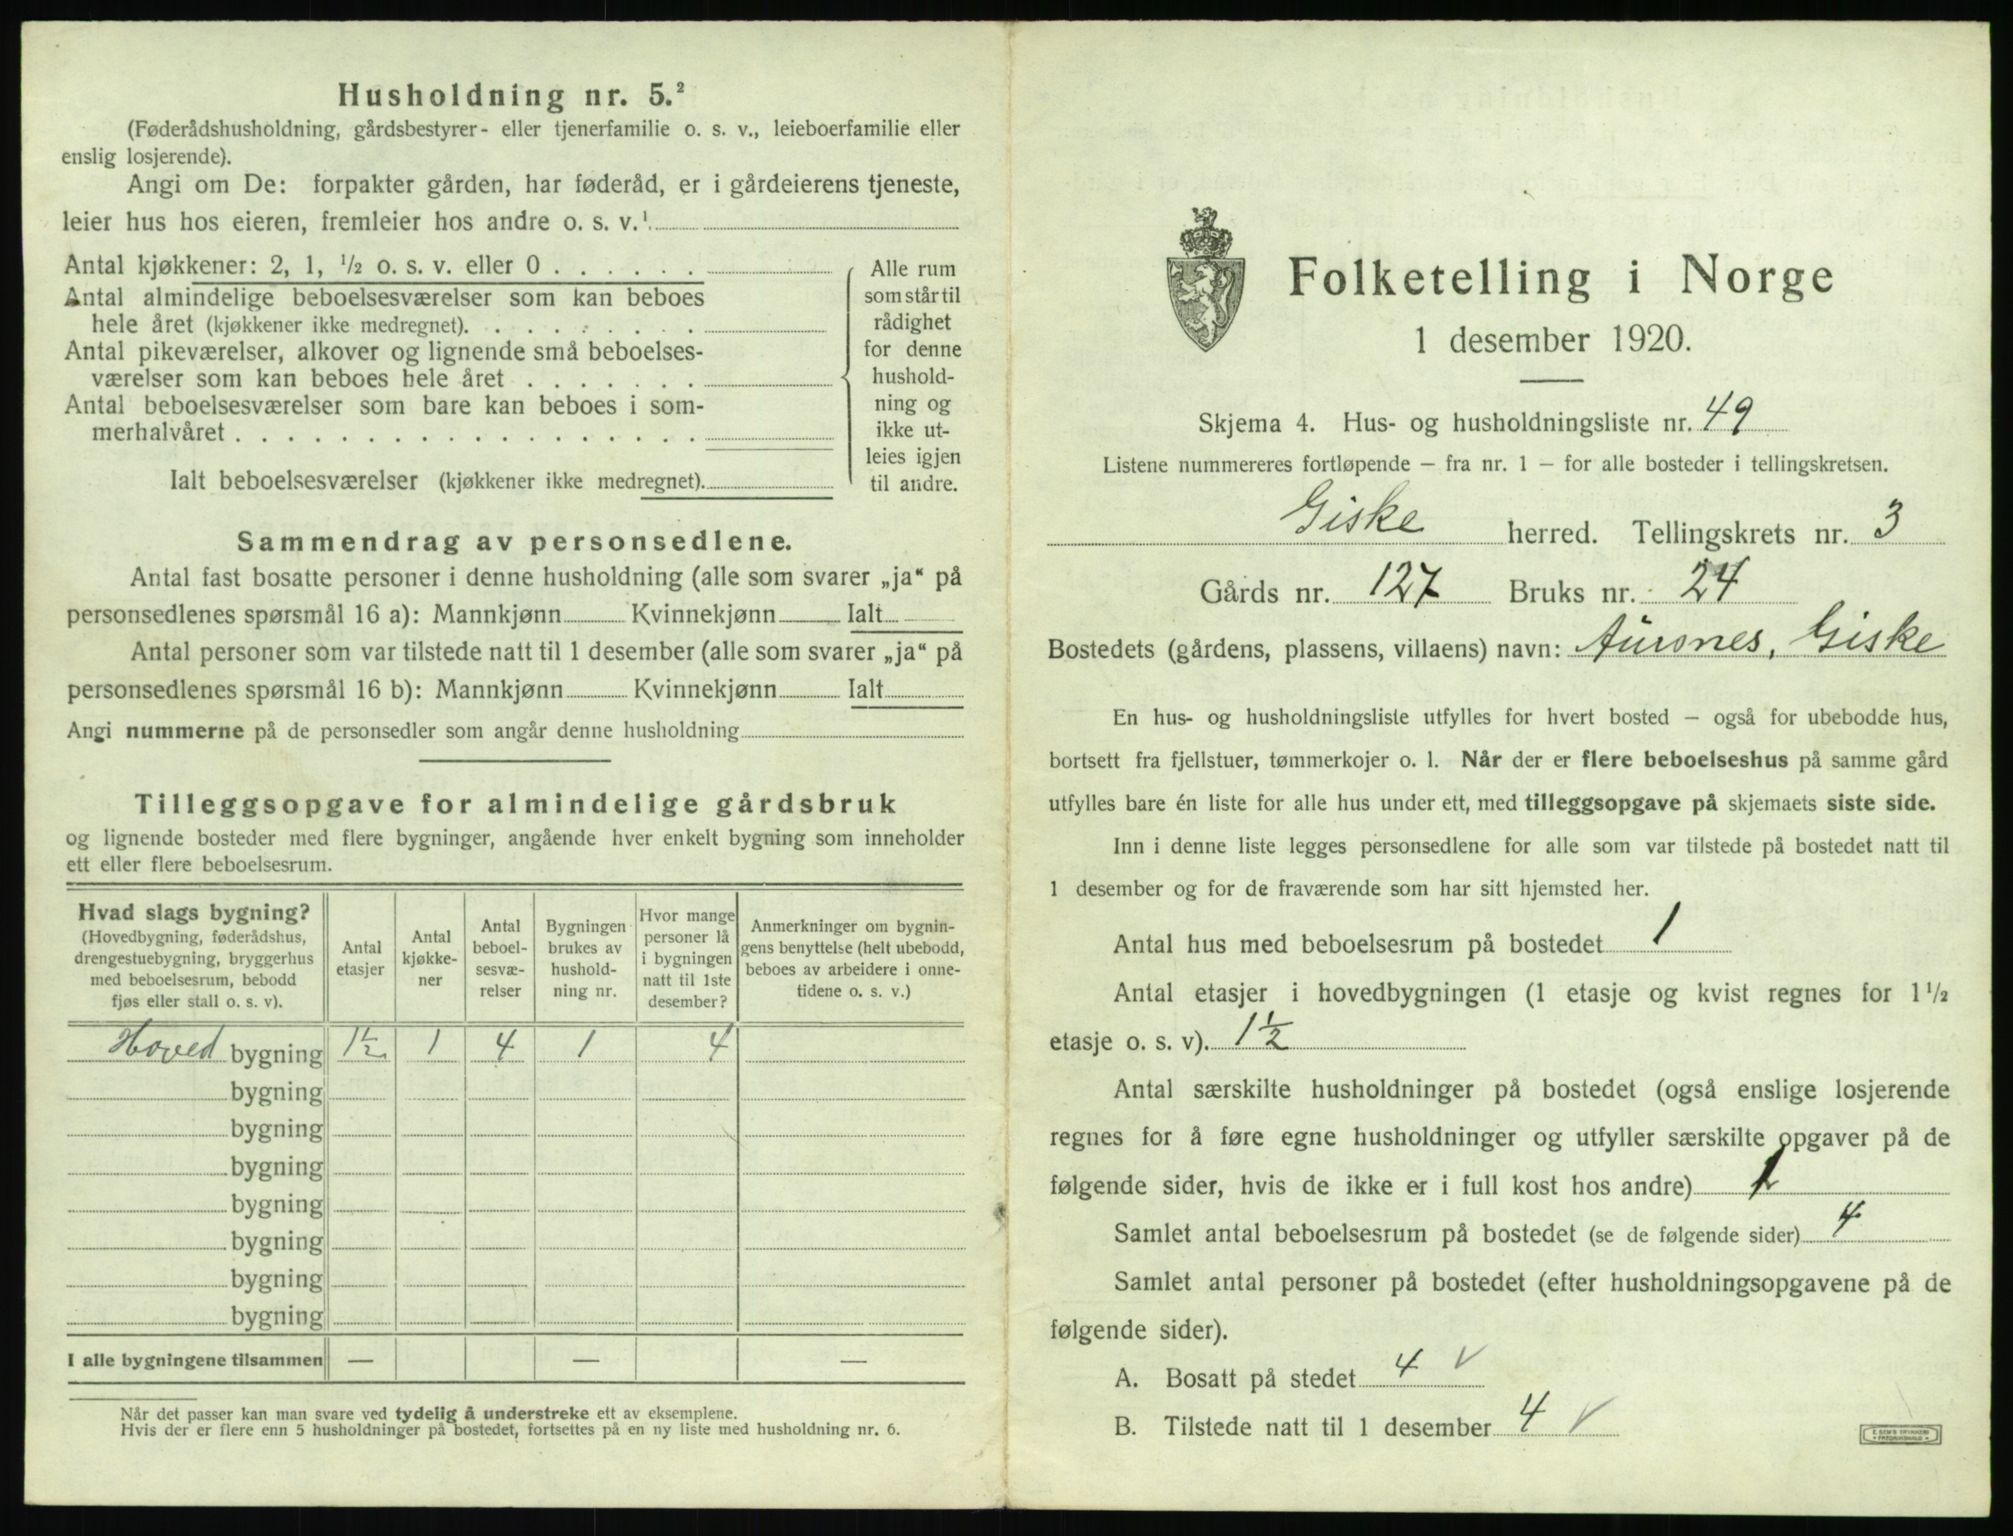 Husholdning nr. 5.²
(Føderådshusholdning, gårdsbestyrer- eller tjenerfamilie o. s. v., leieboerfamilie eller
enslig losjerende).
Angi om De: forpakter gården, har føderåd, er i gårdeierens tjeneste,
leier hus hos eieren, fremleier hos andre o. s. v.¹
Antal kjøkkener: 2, 1, ½ o. s. v. eller 0
Antal almindelige beboelsesværelser som kan beboes
hele året (kjøkkener ikke medregnet).
Antal pikeværelser, alkover og lignende små beboelses-
værelser som kan beboes hele året
Antal beboelsesværelser som bare kan beboes i som-
merhalvåret
Ialt beboelsesværelser (kjøkkener ikke medregnet).
Alle rum
som står til
rådighet
for denne
hushold-
ning og
ikke ut-
leies igjen
til andre.
Sammendrag av personsedlene.
Antal fast bosatte personer i denne husholdning (alle som svarer „ja“ på
personsedlenes spørsmål 16 a): Mannkjønn Kvinnekjønn Ialt
Antal personer som var tilstede natt til 1 desember (alle som svarer „ja“ på
personsedlenes spørsmål 16 b): Mannkjønn Kvinnekjønn Ialt
Angi nummerne på de personsedler som angår denne husholdning
Tilleggsopgave for almindelige gårdsbruk
og lignende bosteder med flere bygninger, angående hver enkelt bygning som inneholder
ett eller flere beboelsesrum.
Hvad slags bygning?
(Hovedbygning, føderådshus,
drengestuebygning, bryggerhus
med beboelsesrum, bebodd
fjøs eller stall o. s. v).
Antal
etasjer
Antal
kjøkke-
ner
Antal
beboel-
sesvæ-
relser
Bygningen
brukes av
hushold-
ning nr.
Hvor mange
personer lå
i bygningen
natt til 1ste
desember?
Anmerkninger om bygnin-
gens benyttelse (helt ubebodd,
beboes av arbeidere i onne-
tidene o. s. v.)
Hoved bygning 1½ 1 4 1 4
bygning
bygning
bygning
bygning
bygning
bygning
bygning
I alle bygningene tilsammen — — —
Når det passer kan man svare ved tydelig å understreke ett av eksemplene.
Hvis der er flere enn 5 husholdninger på bostedet, fortsettes på en ny liste med husholdning nr. 6.
Folketelling i Norge
1 desember 1920.
Skjema 4. Hus- og husholdningsliste nr. 49
Listene nummereres fortløpende — fra nr. 1 — for alle bosteder i tellingskretsen.
Giske herred. Tellingskrets nr. 3
Gårds nr. 127 Bruks nr. 24
Bostedets (gårdens, plassens, villaens) navn: Aursnes, Giske
En hus- og husholdningsliste utfylles for hvert bosted — også for ubebodde hus,
bortsett fra fjellstuer, tømmerkojer o. l. Når der er flere beboelseshus på samme gård
utfylles bare én liste for alle hus under ett, med tilleggsopgave på skjemaets siste side.
Inn i denne liste legges personsedlene for alle som var tilstede på bostedet natt til
1 desember og for de fraværende som har sitt hjemsted her.
Antal hus med beboelsesrum på bostedet 1
Antal etasjer i hovedbygningen (1 etasje og kvist regnes for 1½
etasje o. s. v). 1½
Antal særskilte husholdninger på bostedet (også enslige losjerende
regnes for å føre egne husholdninger og utfyller særskilte opgaver på de
følgende sider, hvis de ikke er i full kost hos andre) 1
Samlet antal beboelsesrum på bostedet (se de følgende sider) 4
Samlet antal personer på bostedet (efter husholdningsopgavene på de
følgende sider).
A. Bosatt på stedet 4 √
B. Tilstede natt til 1 desember 4 √